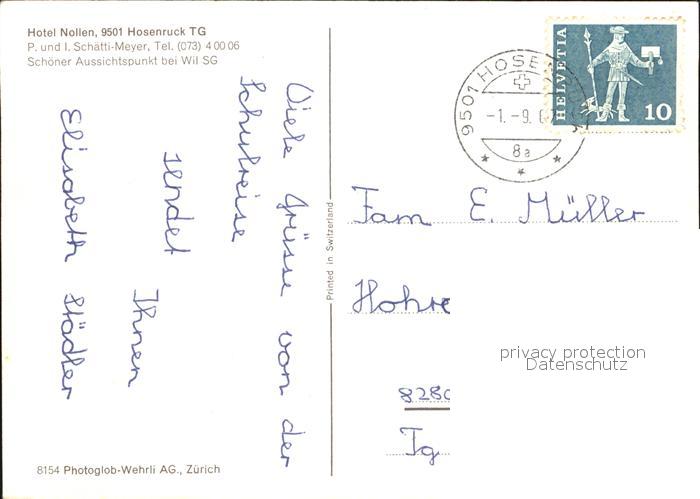 Hotel Nollen, 9501 Hosenruck TG
P. und I. Schätti-Meyer, Tel. (073) 4 00 06
Schöner Aussichtspunkt bei Wil SG
Viele Grüsse von der
Schulreise
sendet
Ihnen
Elisabeth Städler
Printed in Switzerland
8154 Photoglob-Wehrli AG., Zürich
9501 HOSE
-1.-9. 6
8a
HELVETIA
10
Fam E. Müller
Hohre
8280
Tg
privacy protection
Datenschutz